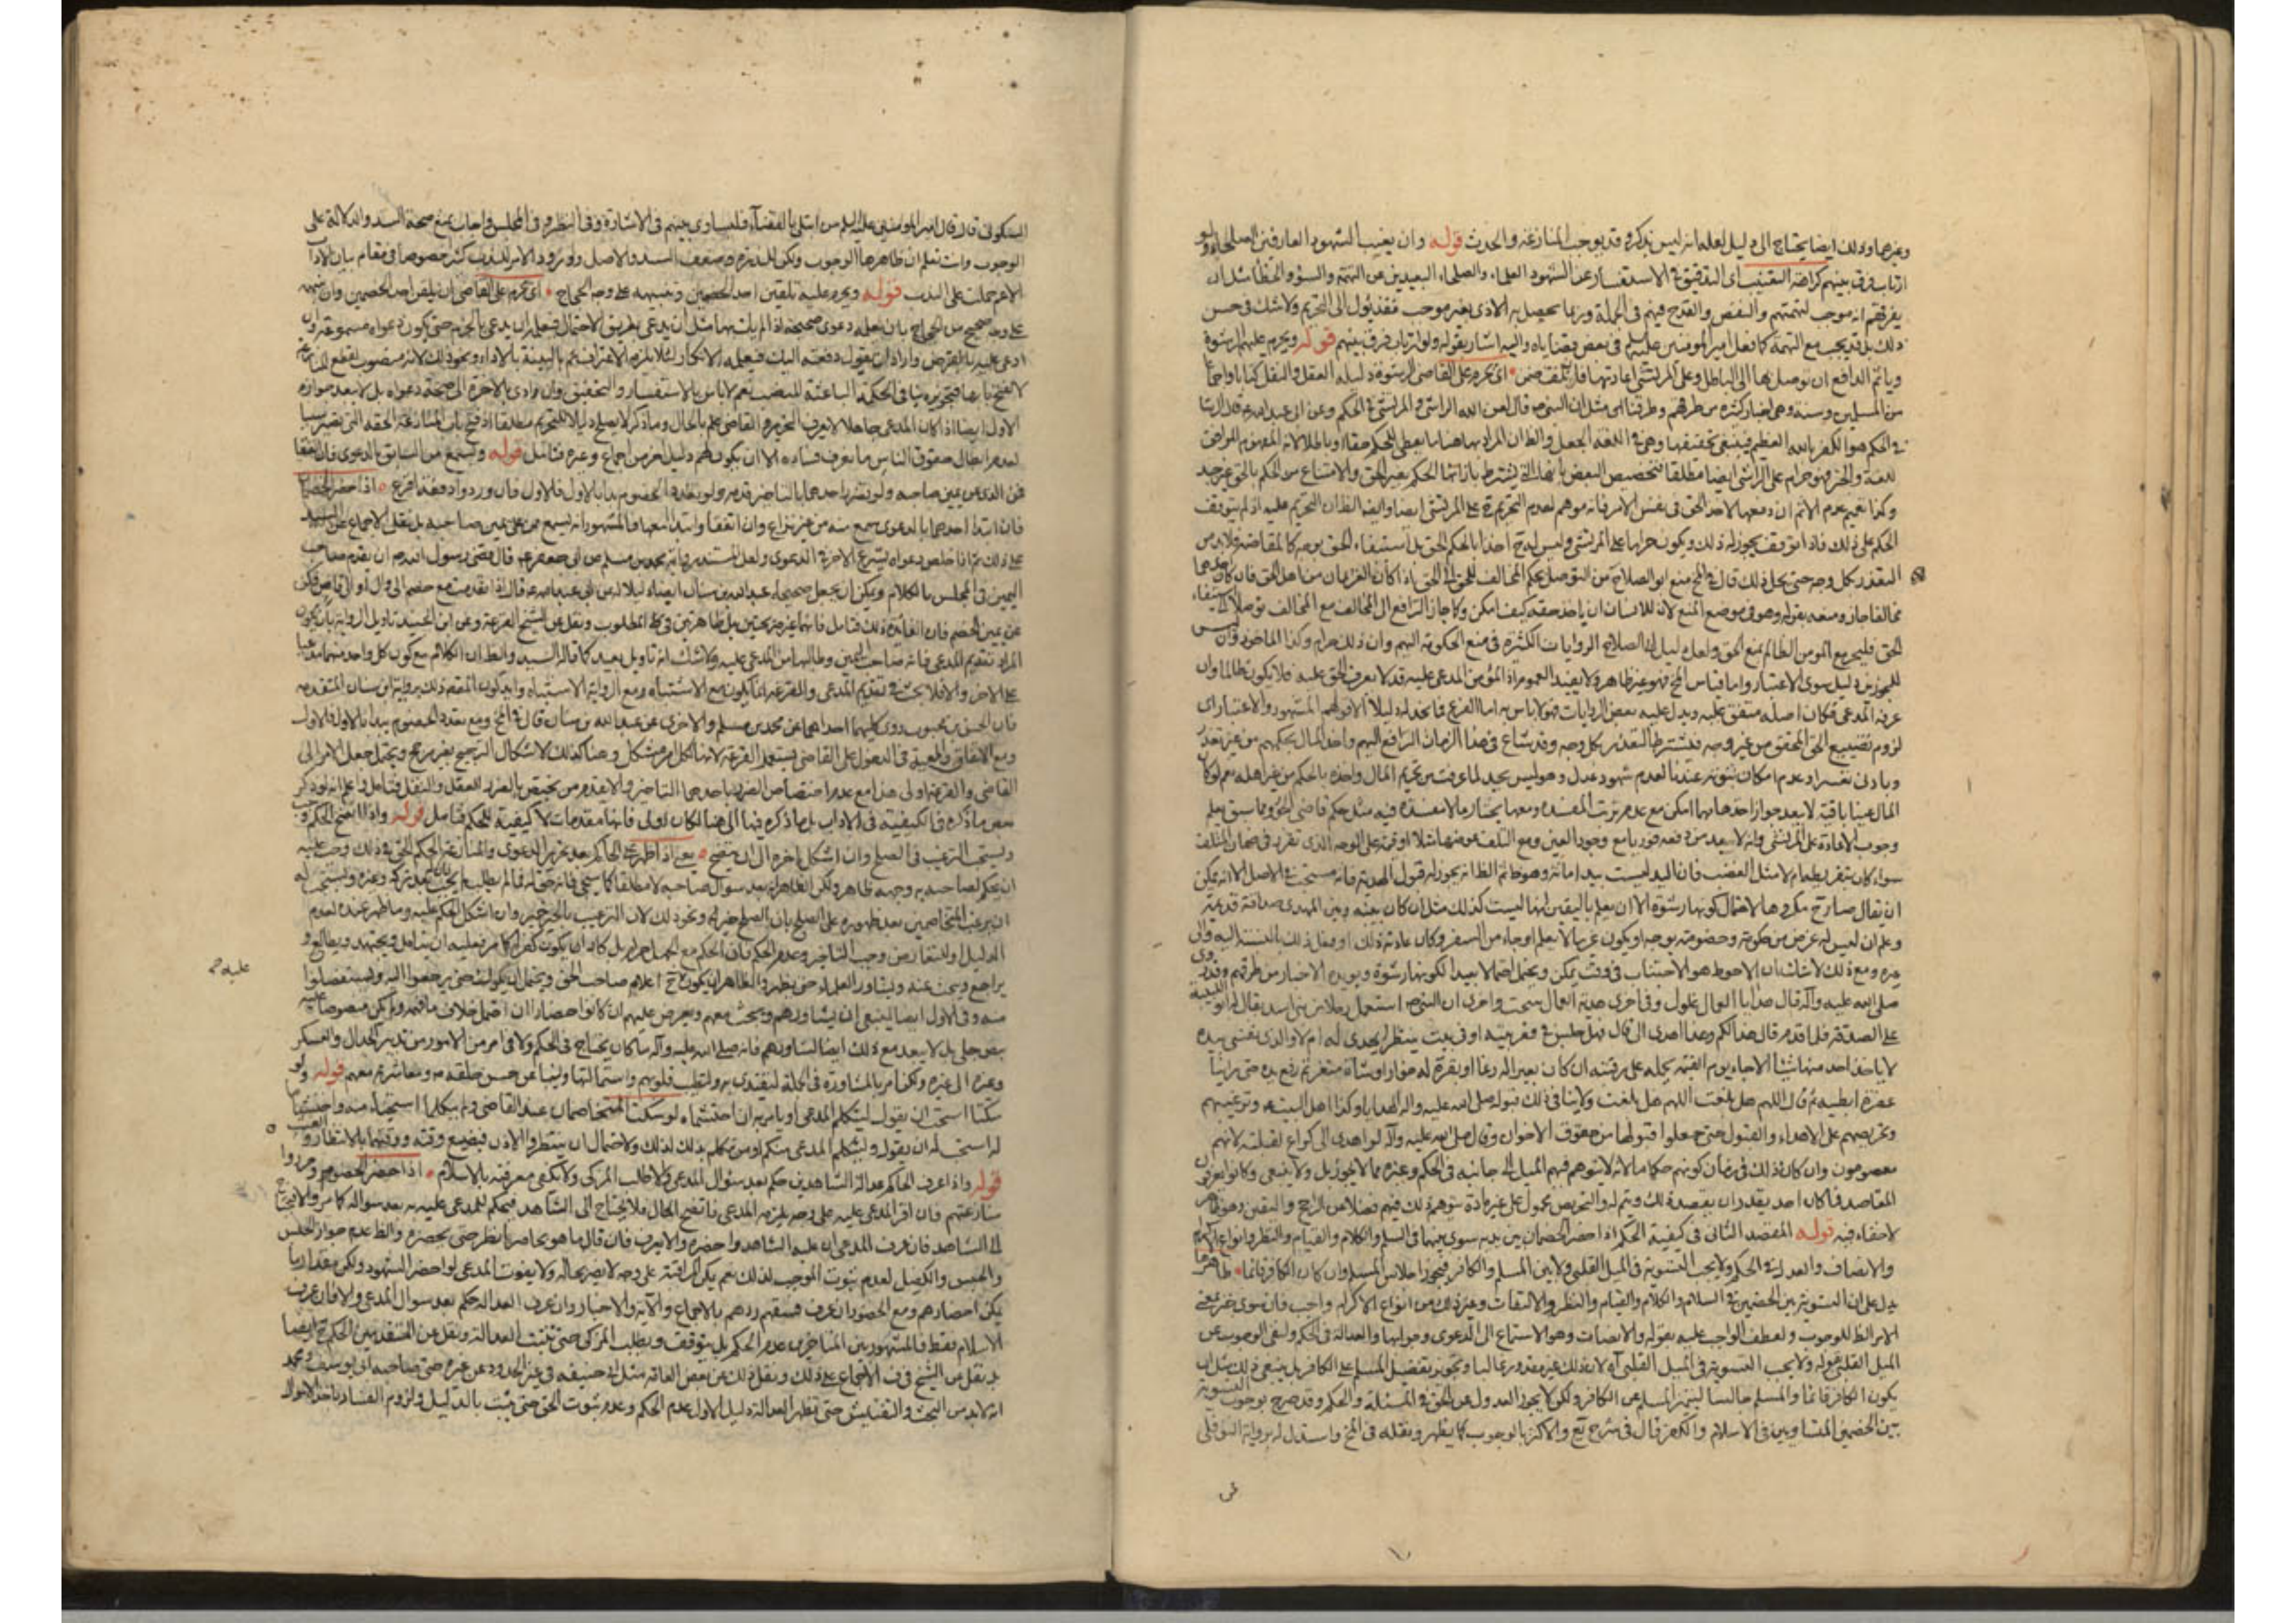 وغيرهما وذلك ايضا يحتاج الى دليل لعله انه ليس بذكره وقد يوجب المنازعة والحديث قوله وان يعنت الشهود العارفين الصلحاء ولو
ارتاب فرق بينهم كراهة التعنيت اى التدقيق فى الاستفسار عن الشهود العلماء والصلحاء البعيدين عن التهمة والسهو والخطأ مثل ان
يفرقهم انه موجب لتهمتهم والنقص والقدح فيهم فى الجملة وربما يحصل به الاذى بغير موجب فقد يؤل الى التحريم ولا شك فى حسن
ذلك بل قد يجب مع التهمة كما فعل امير المؤمنين عليه السلم فى بعض قضاياه واليه اشار بقوله ولو ارتاب فرق بينهم قوله ويحرم عليهم الرشوة
وياثم الدافع ان توصل بها الى الباطل وعلى المرتشى اعادتها فان تلفت ضمن اى يحرم على القاضى الرشوة دليله العقل والنقل كتابا واجماعا
من المسلمين وسنة وهى اخبار كثيرة من طرقهم وطرقنا مثل ان النبى ص قال لعن الله الراشى والمرتشى فى الحكم وعن ابى عبد الله ع قال الرشا
فى الحكم هو الكفر بالله العظيم فينبغى تحقيقها وهى فى اللغة الجعل والظ ان المراد بها هنا ما يعطى للحكم حقا او باطلا لانه المفهوم المراد
لغة والخبر فهو حرام على المرتشى ايضا مطلقا فتخصيص البعض بانها التى يشترط بازائها الحكم بغير الحق والامتناع من الحكم بالحق غير جيد
وكذا تعميم عدم الاثم ان دفعها لاخذ الحق فى نفس الامر فانه موهم لعدم التحريم ح على المرتشى ايضا وايضا الظ ان التحريم عليه اذ لم يتوقف
الحكم على ذلك فاذا توقف يجوز له ذلك ويكون حراما على المرتشى وليس له ح اخذا بالحكم الحق بل استيفاء الحق بوجه كالمقاصة فلا بد من
التعذر بكل وجه حتى يحل ذلك قال فى لخ منع ابو الصلاح من التوصل بحكم المخالف للحق الى الحق اذا كان الغريمان من اهل الحق فان كان احدهما
مخالفا جاز ومنعه بقوله وهو فى موضع المنع لان للانسان ان ياخذ حقه كيف امكن وكما جاز الترافع الى المخالف مع المخالف توصلا الى استيفاء
الحق فليجز مع المومن الظالم بمنع الحق ولعل دليل ابى الصلاح الروايات الكثيرة فى منع الحكومة اليهم وان ذلك حرام وكذا الماخوذ وان
للمجوزين دليل سوى الاعتبار واما قياس لخ فهو غير ظاهر ولا يفيد العموم اذ المؤمن المدعى عليه قد لا يعرف الحق عليه فلا يكون ظالما وان
عرفه المدعى فكان اصله متفق عليه ويدل عليه بعض الروايات فهو لا باس به اما الفرع فما نجد له دليلا الا قولهم المشهور والاعتبار اى
لزوم تضييع الحق المحقق من غير وجه فيشترط التعذر بكل وجه وقد شاع فى هذا الزمان الترافع اليهم واخذ المال بحكمهم من غير تعذر
وبادنى تعسر او عدم امكان ثبوته عندنا لعدم شهود عدل وهو ليس بجيد لما عرفت من تحريم المال واخذه بالحكم من غير اهله نعم لو كان
المال عينا باقية لا يبعد جواز اخذها مهما امكن مع عدم ترتب المفسدة ومعها يختار ما لا مفسدة فيه مثل حكم قاضى الجور ومما سبق يعلم
وجوب الاعادة على المرتشى وانه لا يبعد من دفعه فورا مع وجود العين ومع التلف عوضها مثلا او قيمة على الوجه الذى تقرر فى ضمان المتلف
سواء كان بتفريطه ام لا مثل الغصب فان اليد ليست بيد امانة وهو ظ ثم الظ انه يجوز له قبول الهدية فانه مستحب فى الاصل الا انه يمكن
ان يقال صار ح مكروها لاحتمال كونها رشوة الا ان يعلم باليقين انها ليست كذلك مثل ان كان بينه وبين المهدى صداقة قديمة
وعلم ان ليس له غرض من حكومة وخصومة بوجه او يكون غريبا لا يعلم او جاء من السفر وكان عادته ذلك او فعل ذلك بالنسبة اليه والى
غيره ومع ذلك لا شك ان الاحوط هو الاجتناب فى وقت يمكن ويحتمل احتمالا بعيدا لكونها رشوة ويؤيده الاخبار من طرقهم وقد روى
صلى الله عليه وآله قال هدايا العمال غلول وفى اخرى هدية العمال سحت واخرى ان النبى ص استعمل رجلا من بنى اسد يقال له ابو البية
على الصدقة فلما قدم قال هذا لكم وهذا اهدى الى قال فهل جلس فى قعر بيته او فى بيت ينتظر ايهدى له ام لا والذى نفسى بيده
لا ياخذ احد منها شيئا الا جاء يوم القيمة يحمله على رقبته ان كان بعيرا له رغاء او بقرة لها خوار او شاة تيعر ثم رفع يده حتى راينا
عفرة ابطيه ثم قال اللهم هل بلغت اللهم هل بلغت ولا ينافى ذلك قبوله صلى الله عليه وآله الهدايا وكذا اهل البيت ع وترغيبهم
وتحريصهم على الاهداء والقبول حتى جعلوا قبولها من حقوق الاخوان وقال صلى الله عليه وآله لو اهدى الى كراع لقبلته لانهم
معصومون وان كان ذلك فى زمان كونهم حكاما لانه لا يتوهم فيهم الميل الى جانبه فى الحكم وغيره مما لا يجوز بل ولا ينبغى وكانوا يعرفون
المقاصد فما كان احد يقدر ان يقصد ذلك ويتم له والتحريص محمول على غير مادة يتوهم ذلك فيهم فضلا عن الراجح واليقين وهو ظاهر
لا خفاء فيه قوله المقصد الثانى فى كيفية الحكم اذا حضر الخصمان بين يديه سوى بينهما فى السلم والكلام والقيام والنظر وانواع الاكرام
والانصاف والعدل فى الحكم ولا يجب التسوية فى الميل القلبى ولا بين المسلم والكافر فيجوز اجلاس المسلم وان كان الكافر قائما ظاهر ما
يدل على ان التسوية بين الخصمين فى السلام والكلام والقيام والنظر والالتفات وغير ذلك من انواع الاكرام واجب فان سوى خبر بمعنى
الامر الظ للوجوب ولعطف الواجب عليه بقوله والانصات وهو الاستماع الى الدعوى وجوابها والعدالة فى الحكم ولنفى الوجوب عن
الميل القلبى بقوله ولا يجب التسوية فى الميل القلبى آه لان ذلك غير مقدور غالبا وتجويز تفضيل المسلم على الكافر بل ينبغى ذلك مثل ان
يكون الكافر قائما والمسلم جالسا ليتميز المسلم عن الكافر ولكن لا يجوز العدول عن الحق فى المسئلة والحكم وقد صرح بوجوب التسوية
بين الخصمين المتساويين فى الاسلام والكفر قال فى شرح يع والاكثر بالوجوب كما يظهر ونقله فى لخ واستدل له برواية النوفلى
عن
السكونى قال قال امير المؤمنين عليه السلم من ابتلى بالقضاء فليساوى بينهم فى الاشارة وفى النظر وفى المجلس واجاب بمنع صحة السند والدلالة على
الوجوب وانت تعلم ان ظاهرها الوجوب ولكن للندرة وضعف السند والاصل وورود الامر للندب كثيرا خصوصا فى مقام بيان الاداب
الاعم حملت على الندب قوله ويحرم عليه تلقين احد الخصمين وتنبيهه على وجه الحجاج اى يحرم على القاضى ان يلقن احد الخصمين وان ينبهه
على وجه صحيح من الحجاج بان يعلمه دعوى صحيحة اذا لم يات بها مثل ان يدعى بطريق الاحتمال فيعلمه ان يدعى بالجزم حتى يكون دعواه مسموعة وان
ادعى عليه بالقرض واراد ان يقول دفعته اليك فيعلمه الانكار لئلا يلزمه الاعتراف ثم بالبينة بالاداء ونحو ذلك لانه منصوب لقطع المنازعة
لا لفتح بابها فتجويزه ينافى الحكمة الباعثة للنصب نعم لا باس بالاستفسار والتحقيق وان ادى بالاخرة الى صحة دعواه بل لا يبعد جوازه
الاول ايضا اذا كان المدعى جاهلا لا يعرف التحرير والقاضى علم بالحال وما ذكر لا يصلح دليلا للتحريم مطلقا اذ فتح باب المنازعة الحقة التى يصير سببا
لعدم ابطال حقوق الناس ما نعرف فساده الا ان يكون لهم دليل اخر من اجماع وغيره فتامل قوله ويسمع من السابق بالدعوى فان اتفقا
فمن الذى عن يمين صاحبه ولو تضرر احدهما بالتاخير قدمه ولو تعدد الخصوم بدأ بالاول فالاول فان وردوا دفعة اقرع اذا حضر الخصمان
فان ابتدا احدهما بالدعوى سمع منه من غير نزاع وان اتفقا وابتدا معا فالمشهور انه يسمع ممن على يمين صاحبه بل نقل الاجماع عن السيد
على ذلك ثم اذا خلص دعواه يشرع الاخر فى الدعوى ولعل المستند رواية محمد بن مسلم عن ابى جعفر ع قال قضى رسول الله ص ان يقدم صاحب
اليمين فى المجلس بالكلام ويمكن ان يجعل صحيحة عبد الله بن سنان ايضا دليلا عن ابى عبد الله ع قال اذا تقدمت مع خصم الى وال او الى قاض فكن
عن يمين الخصم فان الفائدة ذلك فتامل فانهما غير صريحتين بل ظاهرتين فى كل المطلوب ونقل عن الشيخ القرعة وعن ابن الجنيد تاويل الرواية بان يكون
المراد تقديم المدعى فانه صاحب اليمين وطالبها من المدعى عليه ولا شك انه تاويل بعيد كما قاله السيد والظ ان الكلام مع كون كل واحد منهما مدعيا
على الاخر والا فلا بحث فى تقديم المدعى والقرعة انما يكون مع الاشتباه ومع الرواية لا اشتباه وايد كون المقدم ذلك برواية ابن سنان المتقدمة
فان الحسن بن محبوب روى كليهما احداهما عن محمد بن مسلم والاخرى عن عبد الله بن سنان قال فى لخ ومع تعدد الخصوم يبدا بالاول فالاول
ومع الاتفاق والمعية فى الدخول على القاضى يستعمل القرعة لانها لكل امر مشكل وهنا كذلك لاشكال الترجيح بغير مرجح ويحتمل جعل الامر الى
القاضى والقرعة اولى هذا مع عدم اختصاص الضرر باحدهما بالتاخير والا يقدم من يختص بالضرر للعقل والنقل فتامل واعلم انه لو ذكر
بعض ما ذكره فى الكيفية فى الاداب بل ما ذكره فيها الى هنا لكان اولى فانها مقدمات لا كيفية للحكم فتامل قوله واذا اتضح الحكم وجب
ويستحب الترغيب فى الصلح وان اشكل اخره الى ان يتضح يعنى اذا ظهر على الحاكم بعد تحرير الدعوى والمنازعة الحكم الحق فى ذلك وجب عليه
ان يحكم لصاحبه وجهه ظاهر ولكن الظاهر انه بعد سؤال صاحبه لا مطلقا كما سيجئ فانه حق له فما لم يطلب لم يجب بل يجوز تركه وغيره ويستحب له
ان يرغب المتخاصمين بعد ظهوره على الصلح بان الصلح خير له ونحو ذلك لان الترغيب بالخير خير وان اشكل الحكم عليه وما ظهر عنده لعدم
الدليل وللتعارض وجب التاخير وعدم الحكم فان الحكم مع الجهل حرام بل كاد ان يكون كفرا كما مر فعليه ان يتامل ويجتهد ويطالع و
عليه ص
يراجع ويبحث عنه ويشاور العلماء حتى يظهر والظاهر ان يكون ح اعلام صاحب الحق ويحتمل ان يكون له حتى يرجعوا اليه ويستفصلوا
منه وفى الاول ايضا ينبغى ان يشاورهم ويبحث معهم ويعرض عليهم ان كانوا حضارا ان احتمل خلاف ما فهمه ولم يكن منصوصا عليه
بنص جلى بل لا يبعد مع ذلك ايضا المشاورة لهم فانه صلى الله عليه وآله ما كان يحتاج فى الحكم ولا فى امر من الامور من تدبير الجدال والعسكر
وغيره الى غيره ولكن امر بالمشاورة فى الجملة ليقتدى به ولتطيب قلوبهم واستمالتها ولينبا عن حسن خلقه ص ومعاشرته معهم قوله ولو
سكتا استحب ان يقول ليتكلم المدعى او يامر به ان احتشماه لو سكت المتخاصمان عند القاضى ولم يتكلما استحياء منه واحتشاما
له استحب له ان يقول وليتكلم المدعى منكم او من تكلم بذلك لذلك ولاحتمال ان ينتظروا الاذن فيضيع وقته ووقتهما بالانتظار والتعب
قوله واذا عرف الحاكم عدالة الشاهدين حكم بعد سؤال المدعى والا طلب المزكى ولا يكفى معرفته بالاسلام اذا حضر الخصوم وحرروا
منازعتهم فان اقر المدعى عليه على وجه يلزمه المدعى فاتضح الحال فلا يحتاج الى الشاهد فيحكم للمدعى عليه به بعد سؤاله كما مر والا فيحتاج
الى الشاهد فان عرف المدعى ان عليه الشاهد واحضره والا يعرف فان قال ما هو بحاضر ينظر حتى يحضره والظ عدم جواز الحبس
والحبس والكفيل لعدم ثبوت الموجب لذلك نعم يمكن المراقبة على وجه لا يضر بحاله ولا يفوت المدعى لو احضر الشهود ولكن مقدارا ما
يمكن احضارهم ومع الحضور ان عرف فسقهم ردهم بالاجماع والآية والاخبار وان عرف العدالة حكم بعد سؤال المدعى والا فان عرف
الاسلام فقط فالمشهور بين المتاخرين عدم الحكم بل يتوقف ويطلب المزكى حتى تثبت العدالة ونقل عن المتقدمين الحكم ح ايضا
بل نقل عن الشيخ فى ف الاجماع على ذلك ونقل ذلك عن بعض العامة مثل ابى حنيفة فى غير الحدود عن غيره حتى صاحبه ابى يوسف ومحمد
انه لا بد من البحث والتفتيش حتى يظهر العدالة دليل الاول عدم الحكم وعدم ثبوت الحق حتى يثبت بالدليل ولزوم الفساد باخذ الاموال